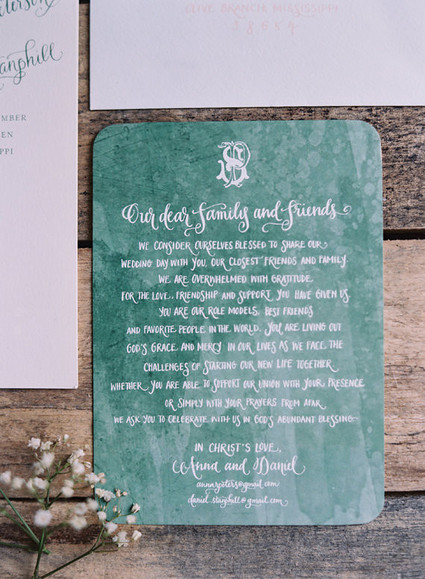 OLIVE BRANCH, MISSISSIPPI
38654
EMBER
EEN
PPI
Our dear family and friends
WE CONSIDER OURSELVES BLESSED TO SHARE OUR
WEDDING DAY WITH YOU, OUR CLOSEST FRIENDS AND FAMILY.
WE ARE OVERWHELMED WITH GRATITUDE
FOR THE LOVE, FRIENDSHIP AND SUPPORT YOU HAVE GIVEN US.
YOU ARE OUR ROLE MODELS, BEST FRIENDS
AND FAVORITE PEOPLE IN THE WORLD. YOU ARE LIVING OUT
GOD'S GRACE AND MERCY IN OUR LIVES AS WE FACE THE
CHALLENGES OF STARTING OUR NEW LIFE TOGETHER.
WHETHER YOU ARE ABLE TO SUPPORT OUR UNION WITH YOUR PRESENCE
OR SIMPLY WITH YOUR PRAYERS FROM AFAR,
WE ASK YOU TO CELEBRATE WITH US IN GOD'S ABUNDANT BLESSING.
IN CHRIST'S LOVE,
Anna and Daniel